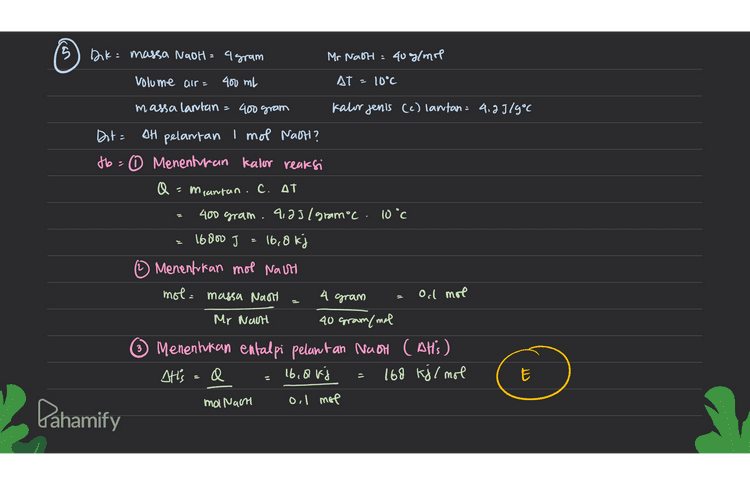 5 Dik : massa NaOH = 4 gram Mr NaOH = 40 g/mol
Volume air = 400 ml ΔT = 10°C
massa larutan = 400 gram kalor jenis (c) larutan = 4,2 J/g°C
Dit = ΔH pelarutan 1 mol NaOH?
Jb = ① Menentukan kalor reaksi
Q = m larutan . C. ΔT
= 400 gram . 4,2 J/gram°C . 10°C
= 16800 J = 16,8 kJ
② Menentukan mol NaOH
mol = massa NaOH = 4 gram = 0,1 mol
Mr NaOH 40 gram/mol
③ Menentukan entalpi pelarutan NaOH (ΔHs)
ΔHs = Q = 16,8 kJ = 168 kJ/mol E
mol NaOH 0,1 mol
Pahamify